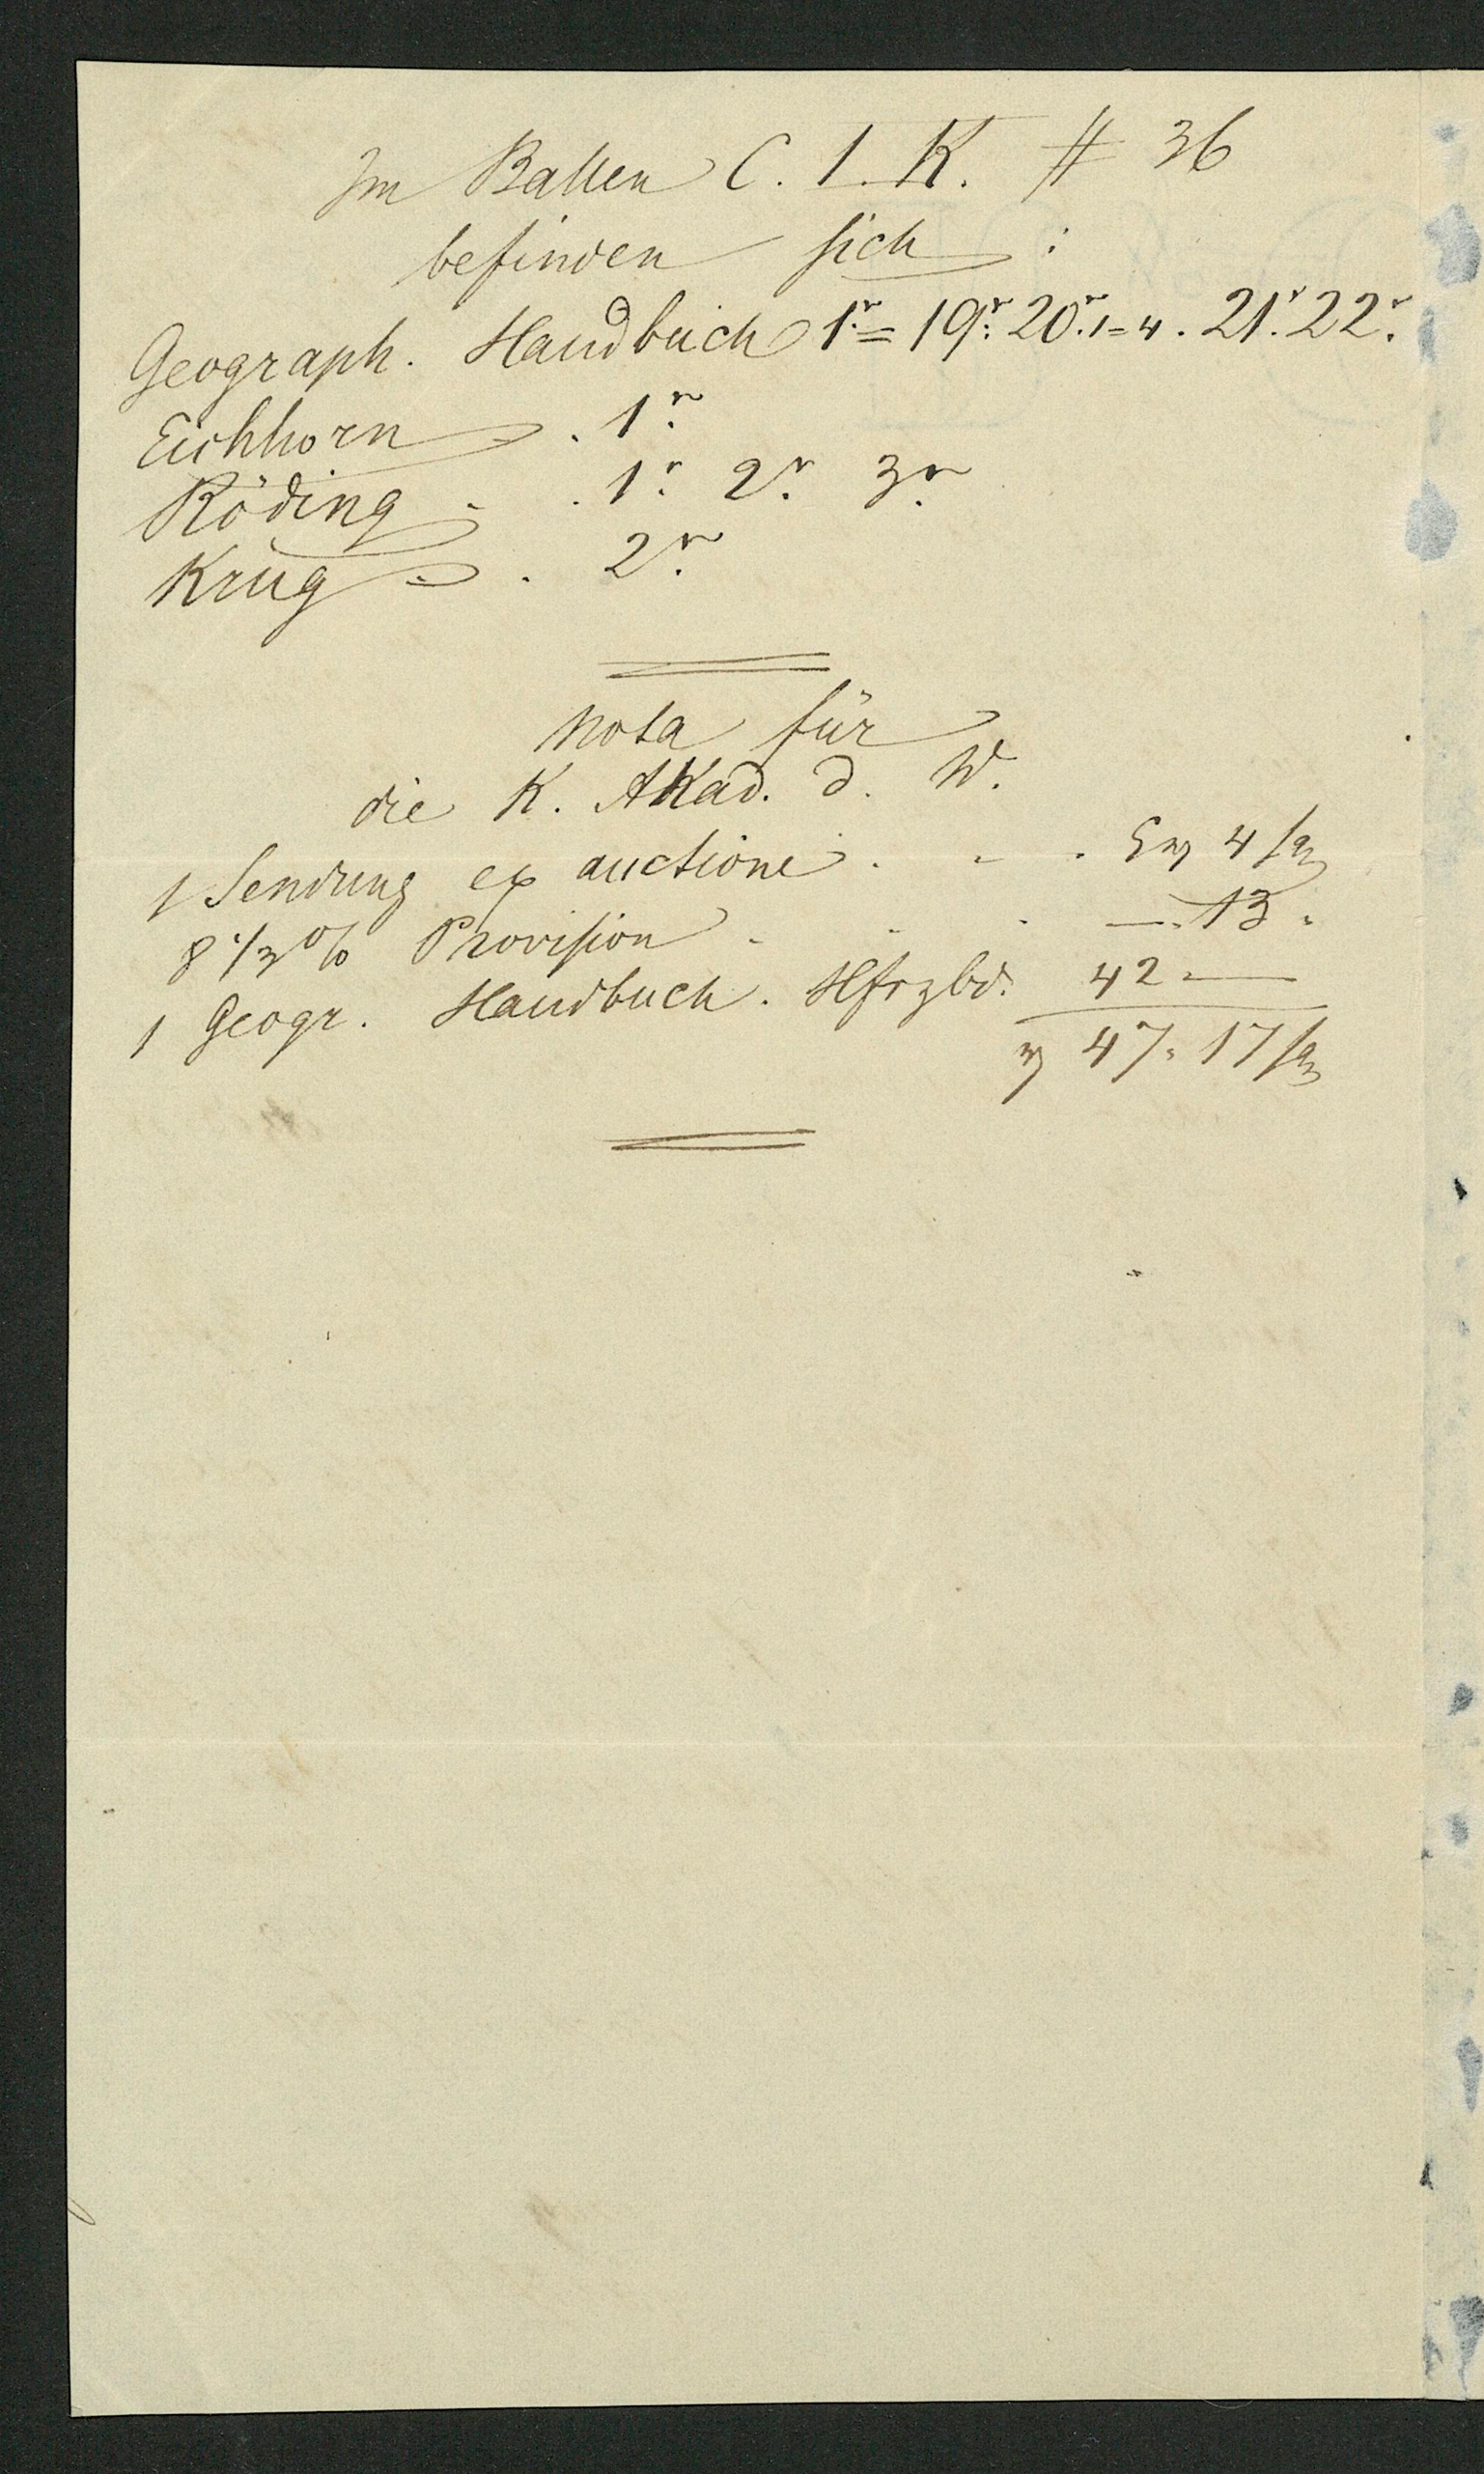 Im Ballen C. I. K. # 36
befinden sich :
Geograph. Handbuch 1r = 19r. 20r. 1=4. 21r. 22r.
Eichhorn . 1r.
Röding . . 1r. 2r. 3r.
Krug . . 2r.
Nota für
die K. Akad. d. W.
1 Sendung ex auctione . . . 5 rℓ 4 sg
8 1/3 % Provision . . . —. 13 .
1 Geogr. Handbuch. Hfrzbd. 42 . —
rℓ 47. 17 sg